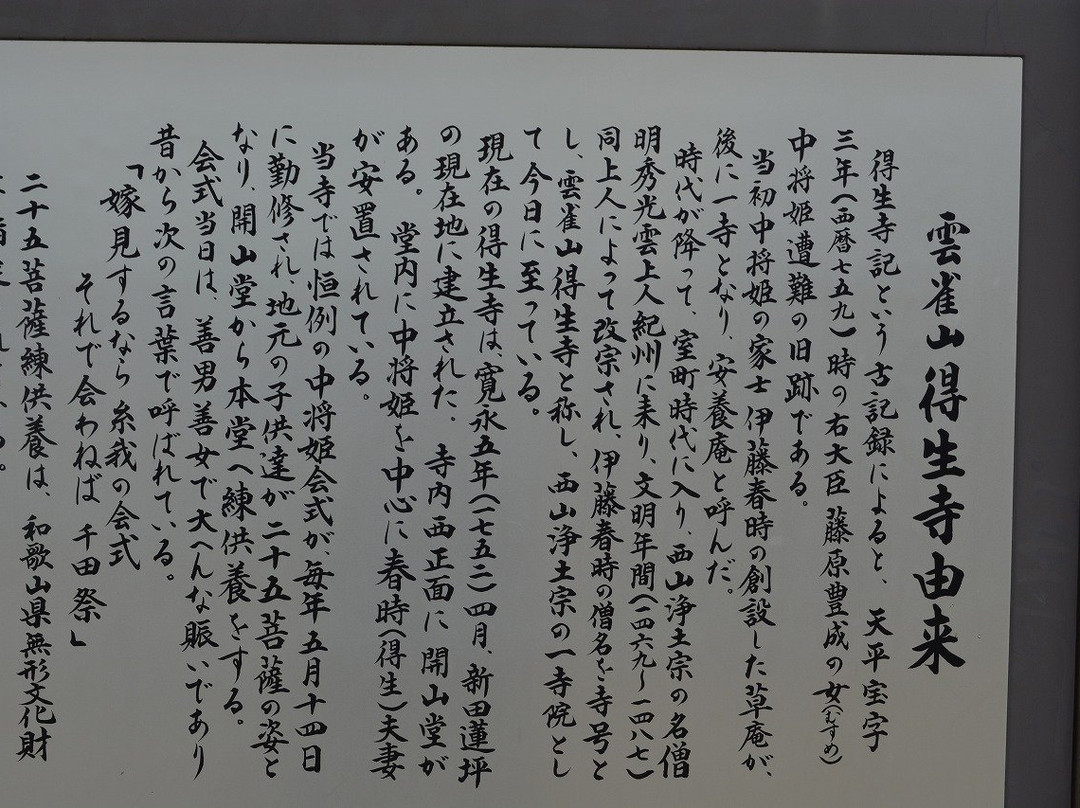 雲雀山得生寺由来
得生寺記という古記録によると、天平宝字
三年(西暦七五九)時の右大臣 藤原豊成の女(むすめ)
中将姫遭難の旧跡である。
当初中将姫の家士 伊藤春時の創設した草庵が、
後に一寺となり、安養庵と呼んだ。
時代が降って、室町時代に入り、西山浄土宗の名僧
明秀光雲上人紀州に来り、文明年間(一四六九~一四八七)
同上人によって改宗され、伊藤春時の僧名を寺号と
し、雲雀山得生寺と称し、西山浄土宗の一寺院とし
て今日に至っている。
現在の得生寺は、寛永五年(一七五二)四月、新田蓮坪
の現在地に建立された。寺内西正面に開山堂が
ある。 堂内に中将姫を中心に春時(得生)夫妻
が安置されている。
当寺では恒例の中将姫会式が、毎年五月十四日
に勤修され、地元の子供達が二十五菩薩の姿と
なり、開山堂から本堂へ練供養をする。
会式当日は、善男善女で大へんな賑いであり
昔から次の言葉で呼ばれている。
「嫁見するなら 糸我の会式
それで会わねば 千田祭」
二十五菩薩練供養は、和歌山県無形文化財